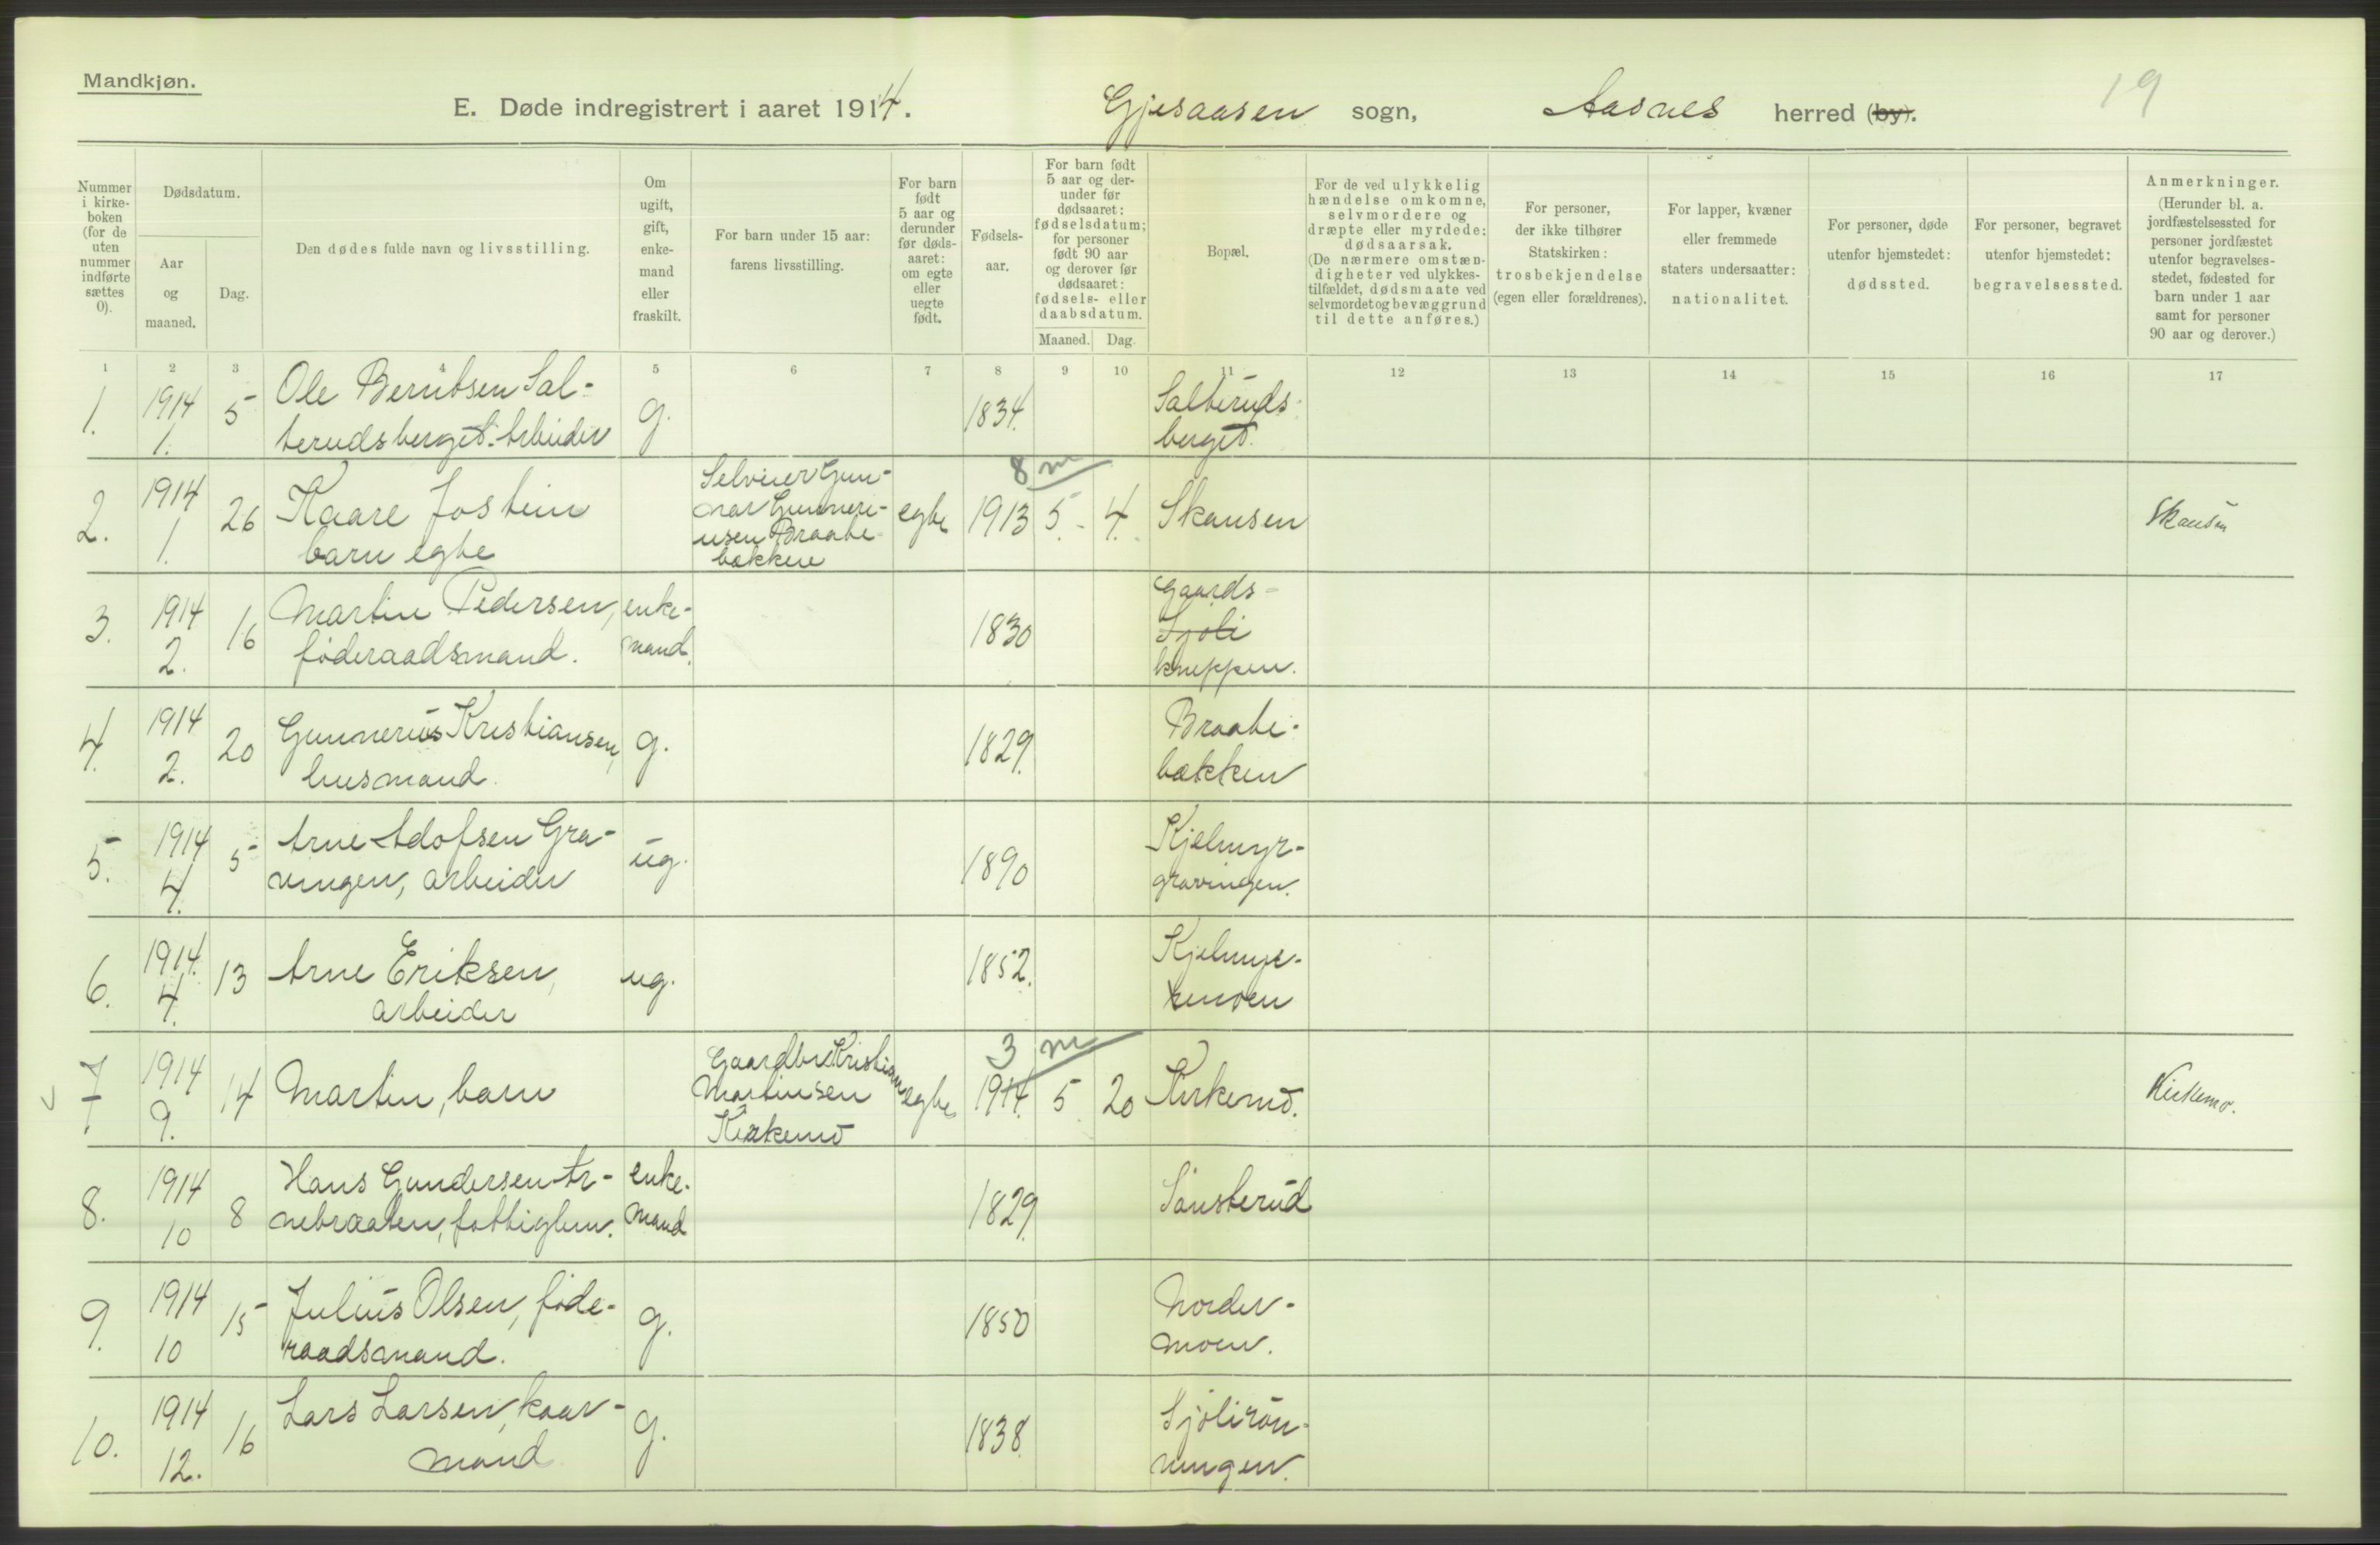 Mandkjøn.
E. Døde indregistrert i aaret 1914. Gjesaasen sogn, Aasnes herred (by).
19
Nummer i kirkeboken (for de uten nummer indførte sættes 0).
Dødsdatum.
Aar og maaned.
Dag.
Den dødes fulde navn og livsstilling.
Om ugift, gift, enkemand eller fraskilt.
For barn under 15 aar: farens livsstilling.
For barn født 5 aar og derunder før dødsaaret: om egte eller uegte født.
Fødselsaar.
For barn født 5 aar og derunder før dødsaaret: fødselsdatum; for personer født 90 aar og derover før dødsaaret: fødsels- eller daabsdatum.
Maaned. Dag.
Bopæl.
For de ved ulykkelig hændelse omkomne, selvmordere og dræpte eller myrdede: dødsaarsak. (De nærmere omstændigheter ved ulykkestilfældet, dødsmaate ved selvmordet og bevæggrund til dette anføres.)
For personer, der ikke tilhører Statskirken: trosbekjendelse (egen eller forældrenes).
For lapper, kvæner eller fremmede staters undersaatter: nationalitet.
For personer, døde utenfor hjemstedet: dødssted.
For personer, begravet utenfor hjemstedet: begravelsessted.
Anmerkninger. (Herunder bl. a. jordfæstelsessted for personer jordfæstet utenfor begravelsesstedet, fødested for barn under 1 aar samt for personer 90 aar og derover.)
1 2 3 4 5 6 7 8 9 10 11 12 13 14 15 16 17
1. 1914 1. 5 Ole Berntsen Sal-
terudsberget. Arbeider g. 1834. Salteruds-
berget.
2. 1914 1. 26 Kaare Jostein
barn egte Selveier Gun-
nar Gunneri-
usen Braate-
bakken egte 8 m 1913 5. 4. Skansen Skansen
3. 1914 2. 16 Martin Pedersen,
føderaadsmand. enke-
mand. 1830 Gaards-
Sjøli
kneppen.
4. 1914 2. 20 Gunnerius Kristiansen,
husmand. g. 1829. Braate-
bakken
5. 1914 4. 5 Arne Adolfsen Gra-
vingen, arbeider ug. 1890 Kjelmyr-
gravingen.
6. 1914. 4. 13 Arne Eriksen,
arbeider ug. 1852. Kjelmyr-
7. 1914 9. 14 Martin, barn Gaardbr. Kristian
Martinsen
Kirkemo egte 3 m 1914. 5 20 Kirkemo. Kirkemo.
8. 1914 10 8 Hans Gundersen Ar-
nebraaten, fattiglem. enke-
mand 1829. Sønsterud
9. 1914 10 15 Julius Olsen, føde-
raadsmand. g. 1850 Norder-
moen.
10. 1914 12. 16 Lars Larsen, kaar-
mand g. 1838. Sjølirøn-
ningen.